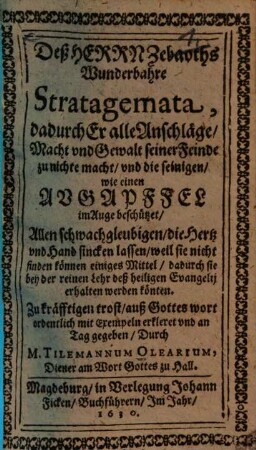 Deß HERRN Zebaoths
Wunderbahre
Stratagemata,
dadurch Er alle Anschläge/
Macht vnd Gewalt seiner Feinde
zu nichte macht/ vnd die seinigen/
wie einen
AVGAPFFEL
im Auge beschützet/
Allen schwachgleubigen/ die Hertz
vnd Hand sincken lassen/ weil sie nicht
finden können einiges Mittel/ dadurch sie
bey der reinen Lehr deß heiligen Evangelij
erhalten werden könten.
Zu kräfftigen trost/ auß Gottes wort
ordentlich mit Exempeln erkleret vnd an
Tag gegeben/ Durch
M. TILEMANNUM OLEARIUM,
Diener am Wort Gottes zu Hall.
Magdeburg/ in Verlegung Johann
Ficken/ Buchführern/ Im Jahr/
1630.